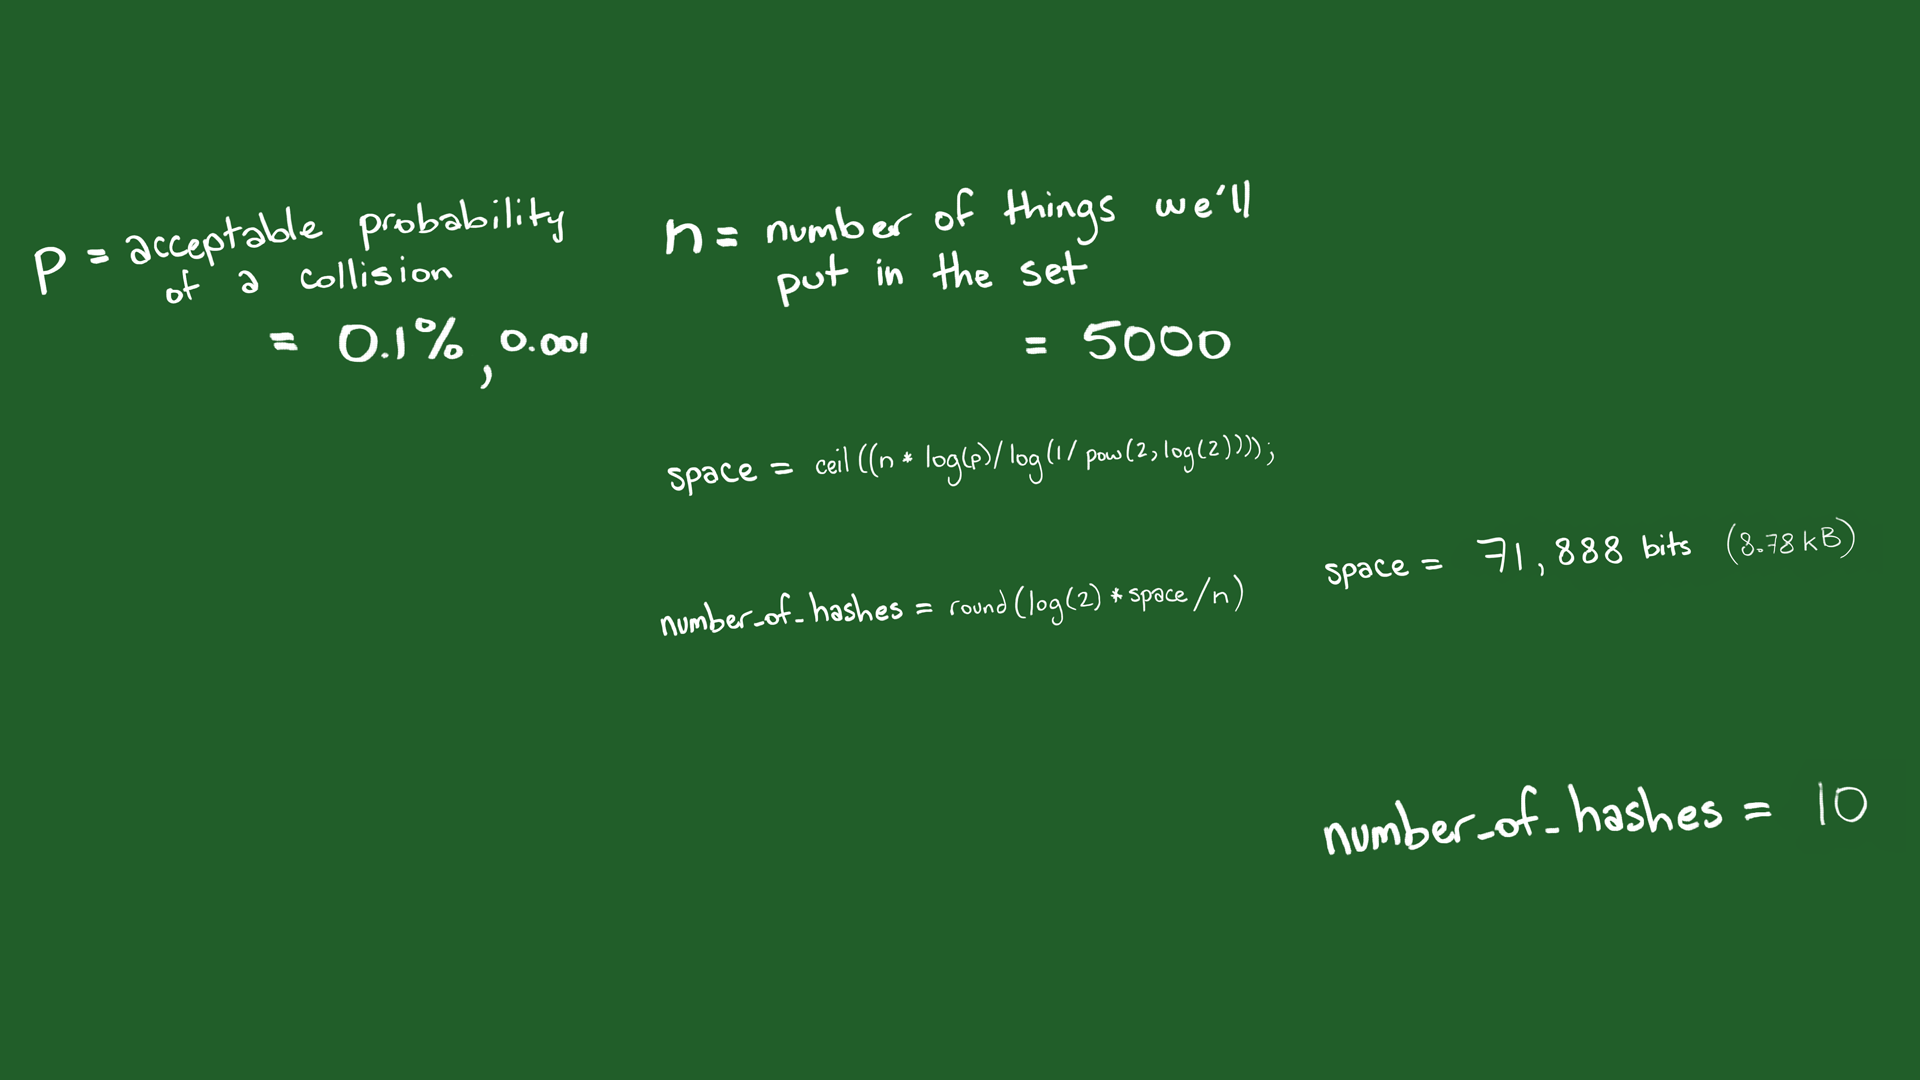 p = acceptable probability
of a collision
= 0.1%, 0.001
n = number of things we'll
put in the set
= 5000
space = ceil((n * log(p)/log(1/pow(2,log(2))));
number_of_hashes = round(log(2) * space/n)
space = 71,888 bits (8.78kB)
number_of_hashes = 10